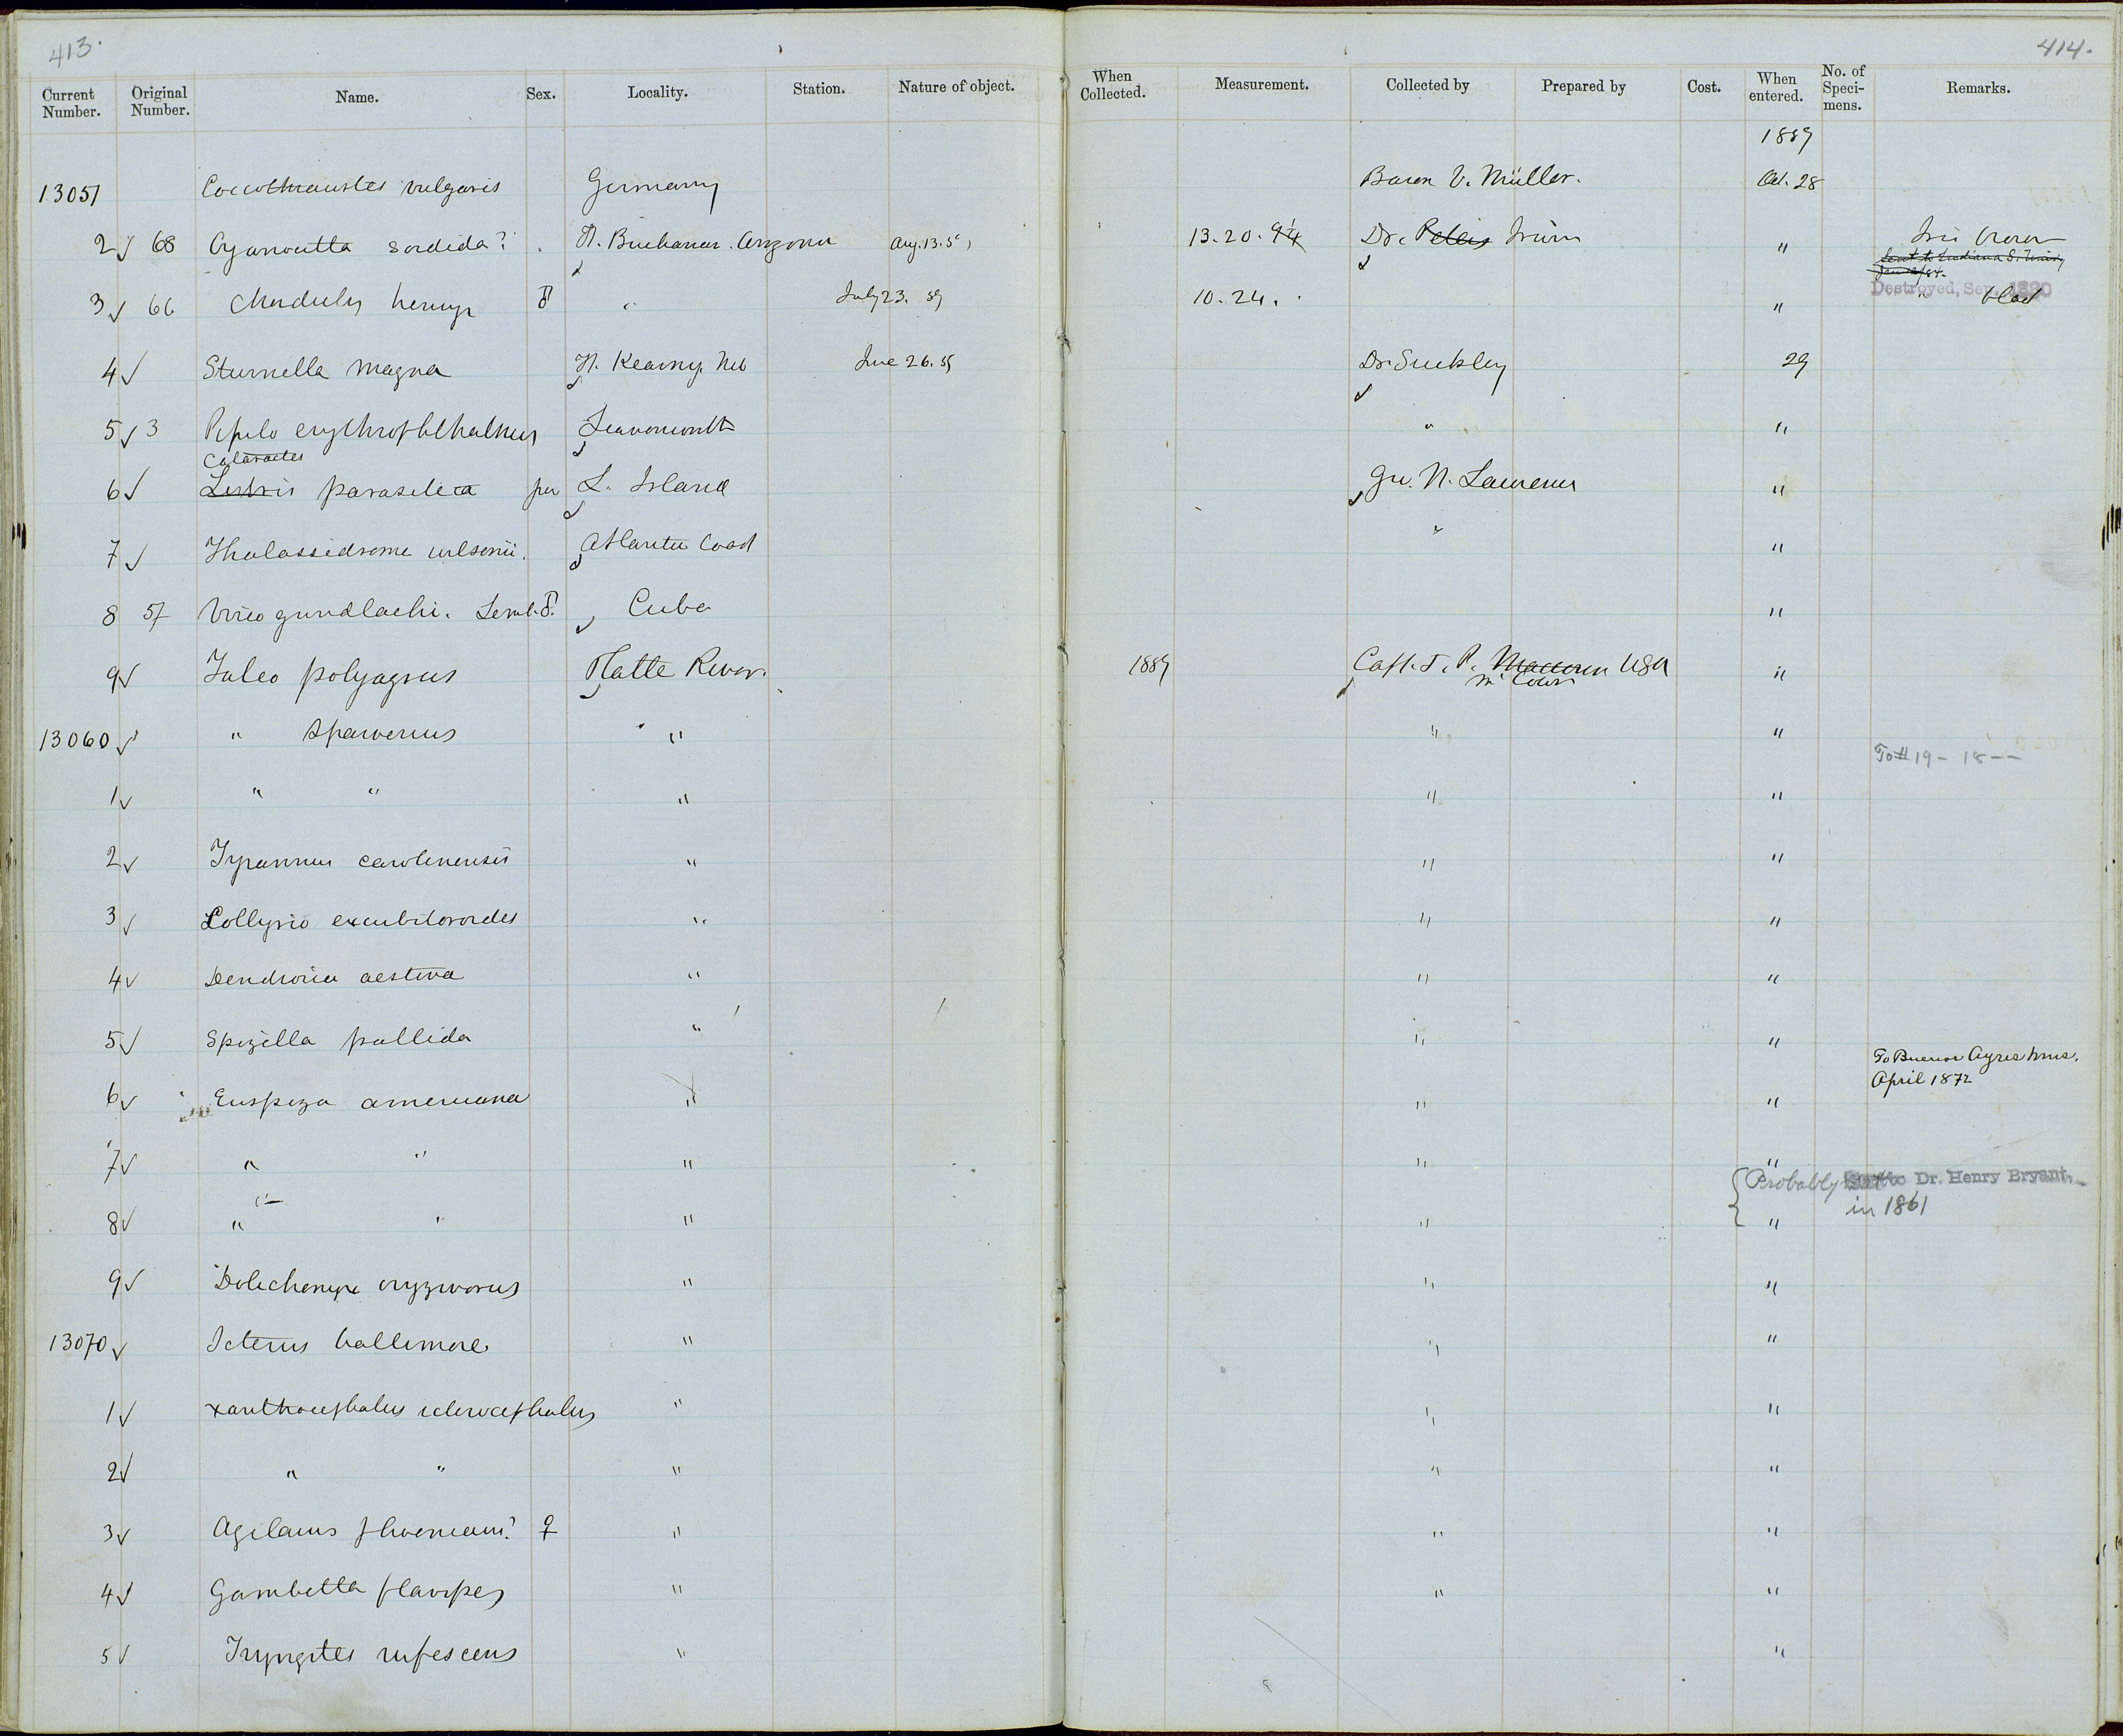 413. 414.
Current Number. Original Number. Name. Sex. Locality. Station. Nature of object. When Collected. Measurement. Collected by Prepared by Cost. When entered. No. of Speci-mens. Remarks.
1859
13051 Coccothraustes vulgaris Germany Baron V. Müller. Oct. 28
2 68 Cyanocitta sordida? Ft. Buchanan. Arizona Aug. 13. 59 13.20. Dr. Irwin " Iris brown
Sent to Indiana S. Univ
Destroyed, Sep. 1880
3 66 ♂ " July 23. 59 10.24. " "
4 Sturnella magna Ft. Kearny, Neb June 26. 59 Dr. Suckley 29
5 3 Pipilo erythrophthalmus Leavenworth " "
Cataractes
6 Lestris parasitica L. Island Geo. N. Lawrence "
7 Thalassidroma wilsonii. Atlantic Coast " "
8 57 Vireo gundlachi. Lemb. ♂ Cuba "
9 Falco polyagrus Platte River. 1859 Capt. J. P. Maccown USA "
McCown
13060 " sparverius " " "
To # 19 - 18 - -
1 " " " " "
2 Tyrannus carolinensis " " "
3 Collyrio excubitoroides " " "
4 Dendroica aestiva " " "
5 Spizella pallida " " "
To Buenos Ayres Mus.
April 1872
6 Euspiza americana " " "
7 " " " " "
Probably sent to Dr. Henry Bryant
in 1861
8 " " " " "
9 Dolichonyx oryzivorus " " "
13070 Icterus baltimore " " "
1 Xanthocephalus icterocephalus " " "
2 " " " " "
3 Agelaius phoeniceus? ♀ " " "
4 Gambetta flavipes " " "
5 Tryngites rufescens " "